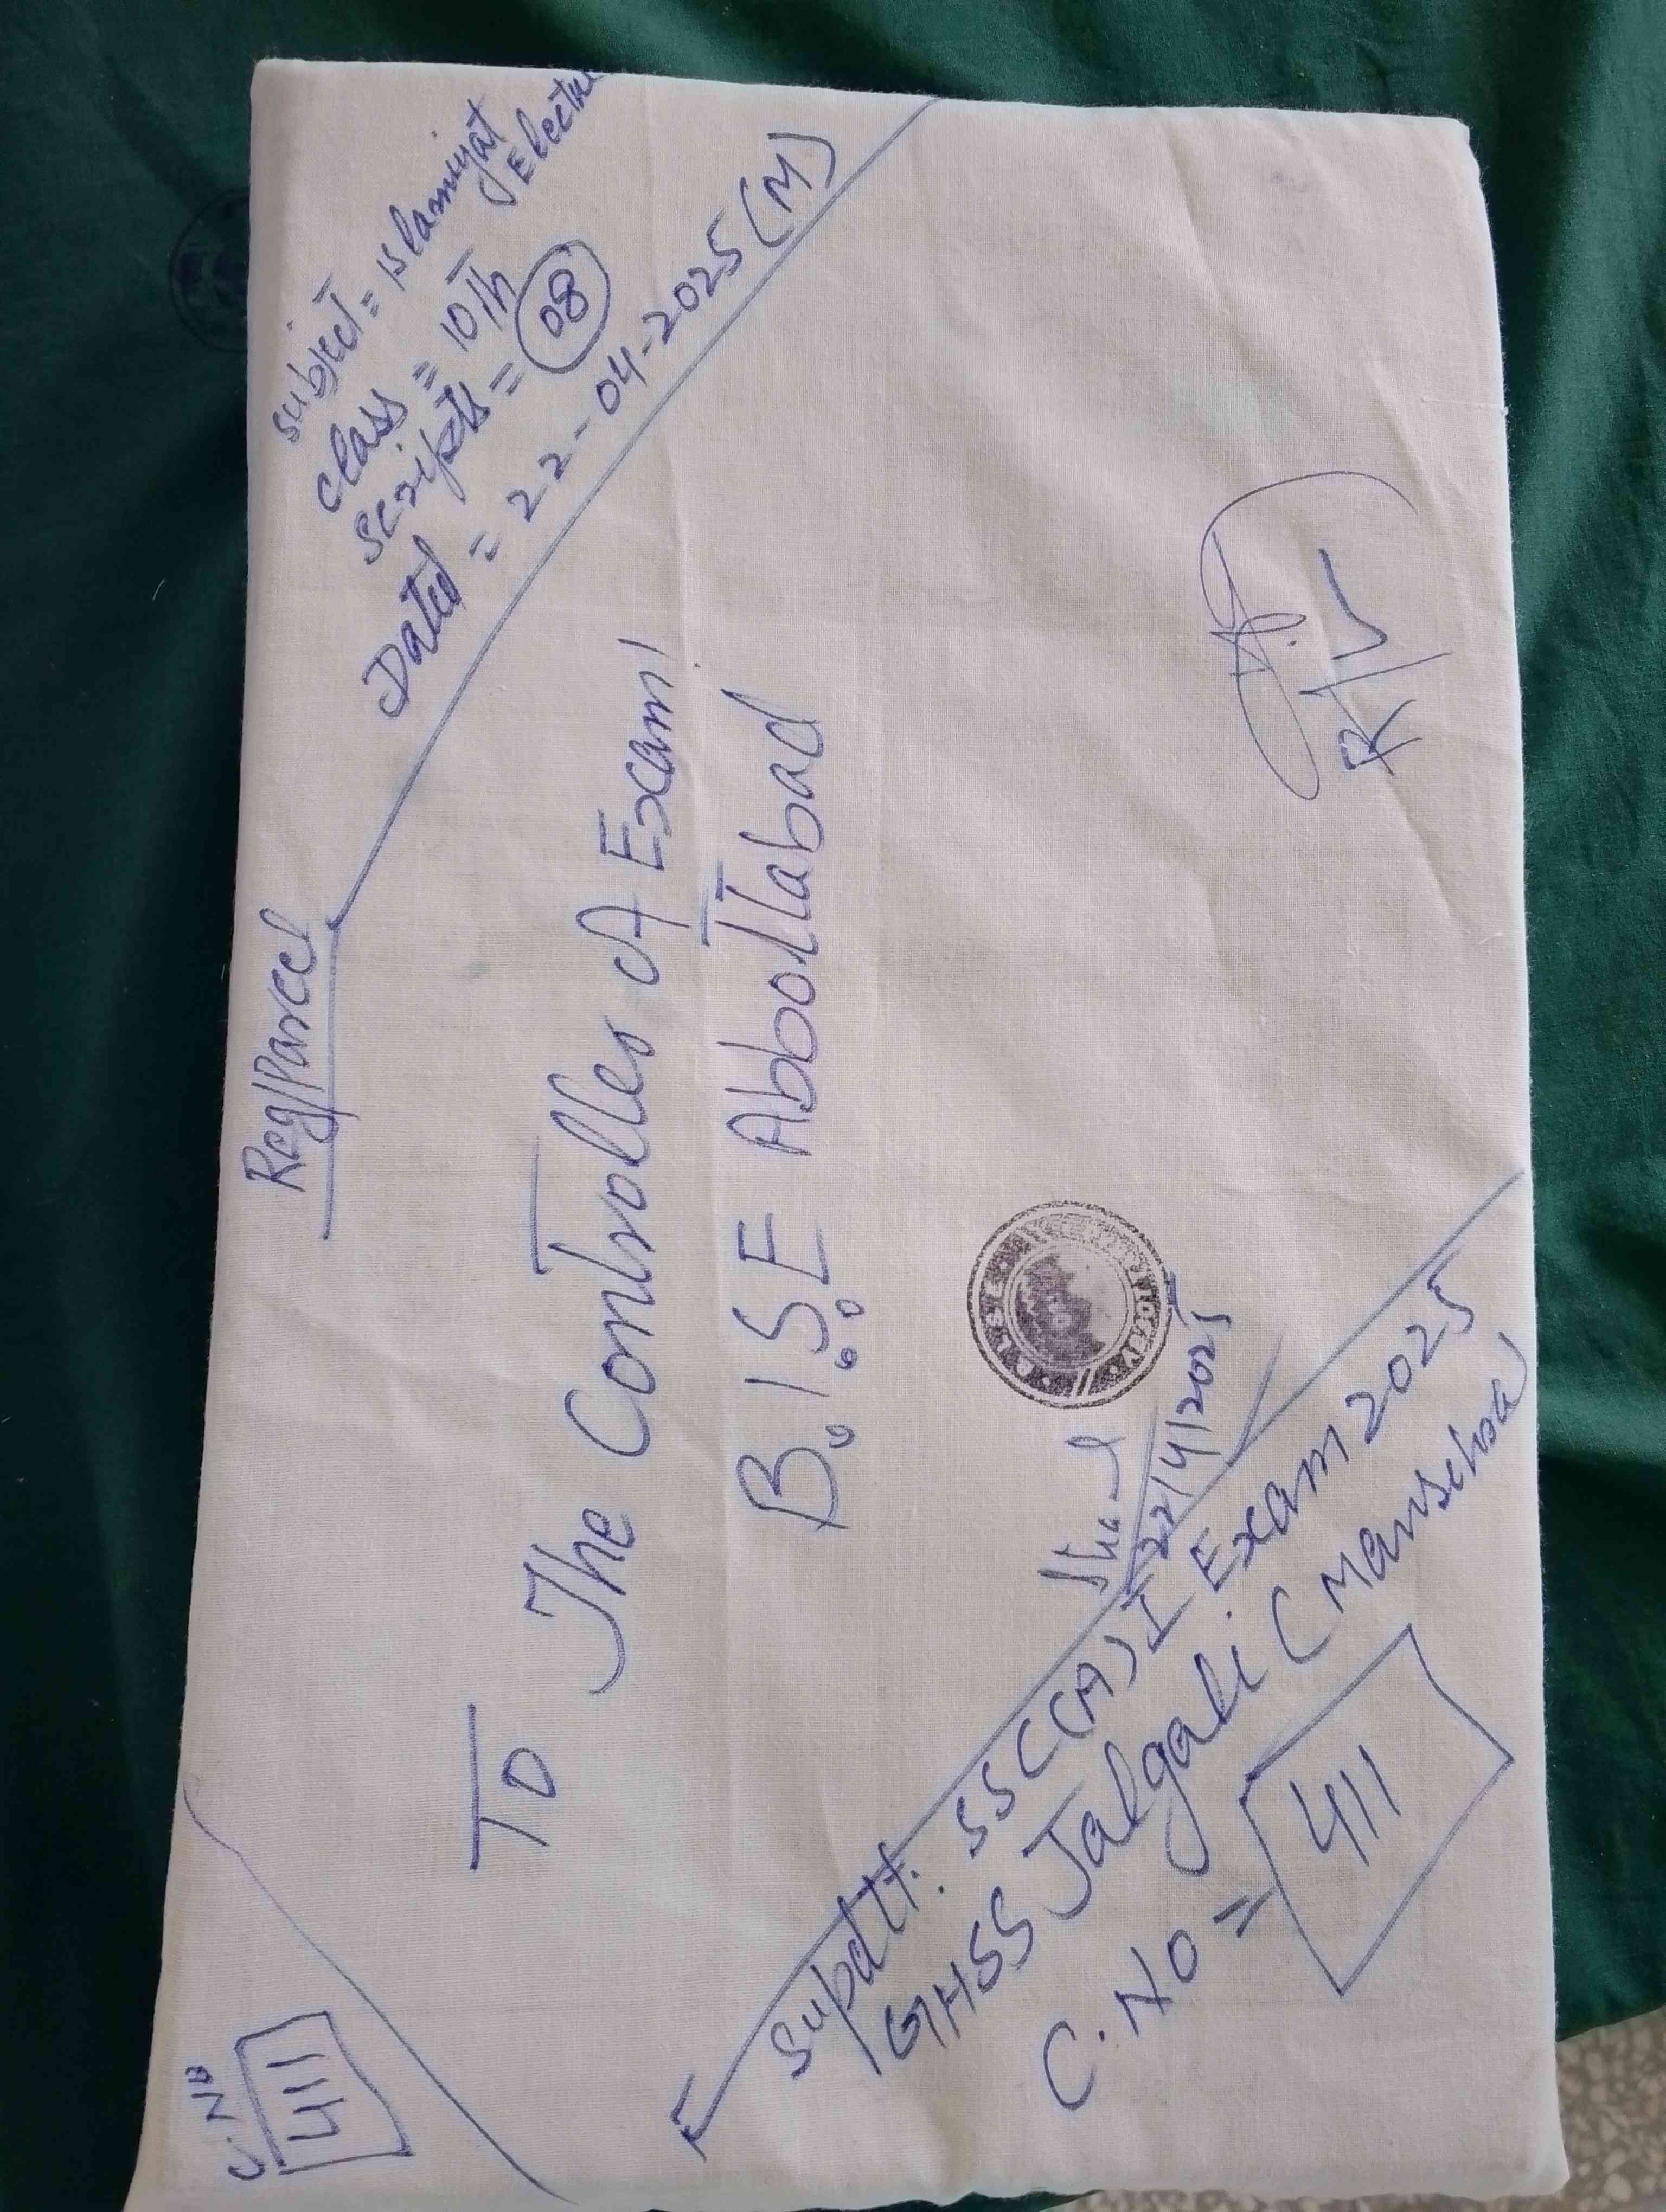 C.No
411
Reg/Parcel
Subject = Islamiyat
Elective
Class = 10Th
Scripts = 08
Dated = 22-04-2025 (M)
To
The Controller of Exam!
B.I.S.E AbboTTabad
22/4/2025
F
Supdtt. SSC(A) I Exam 2025
GHSS Jalgali (Mansehra)
C.No = 411
R/V